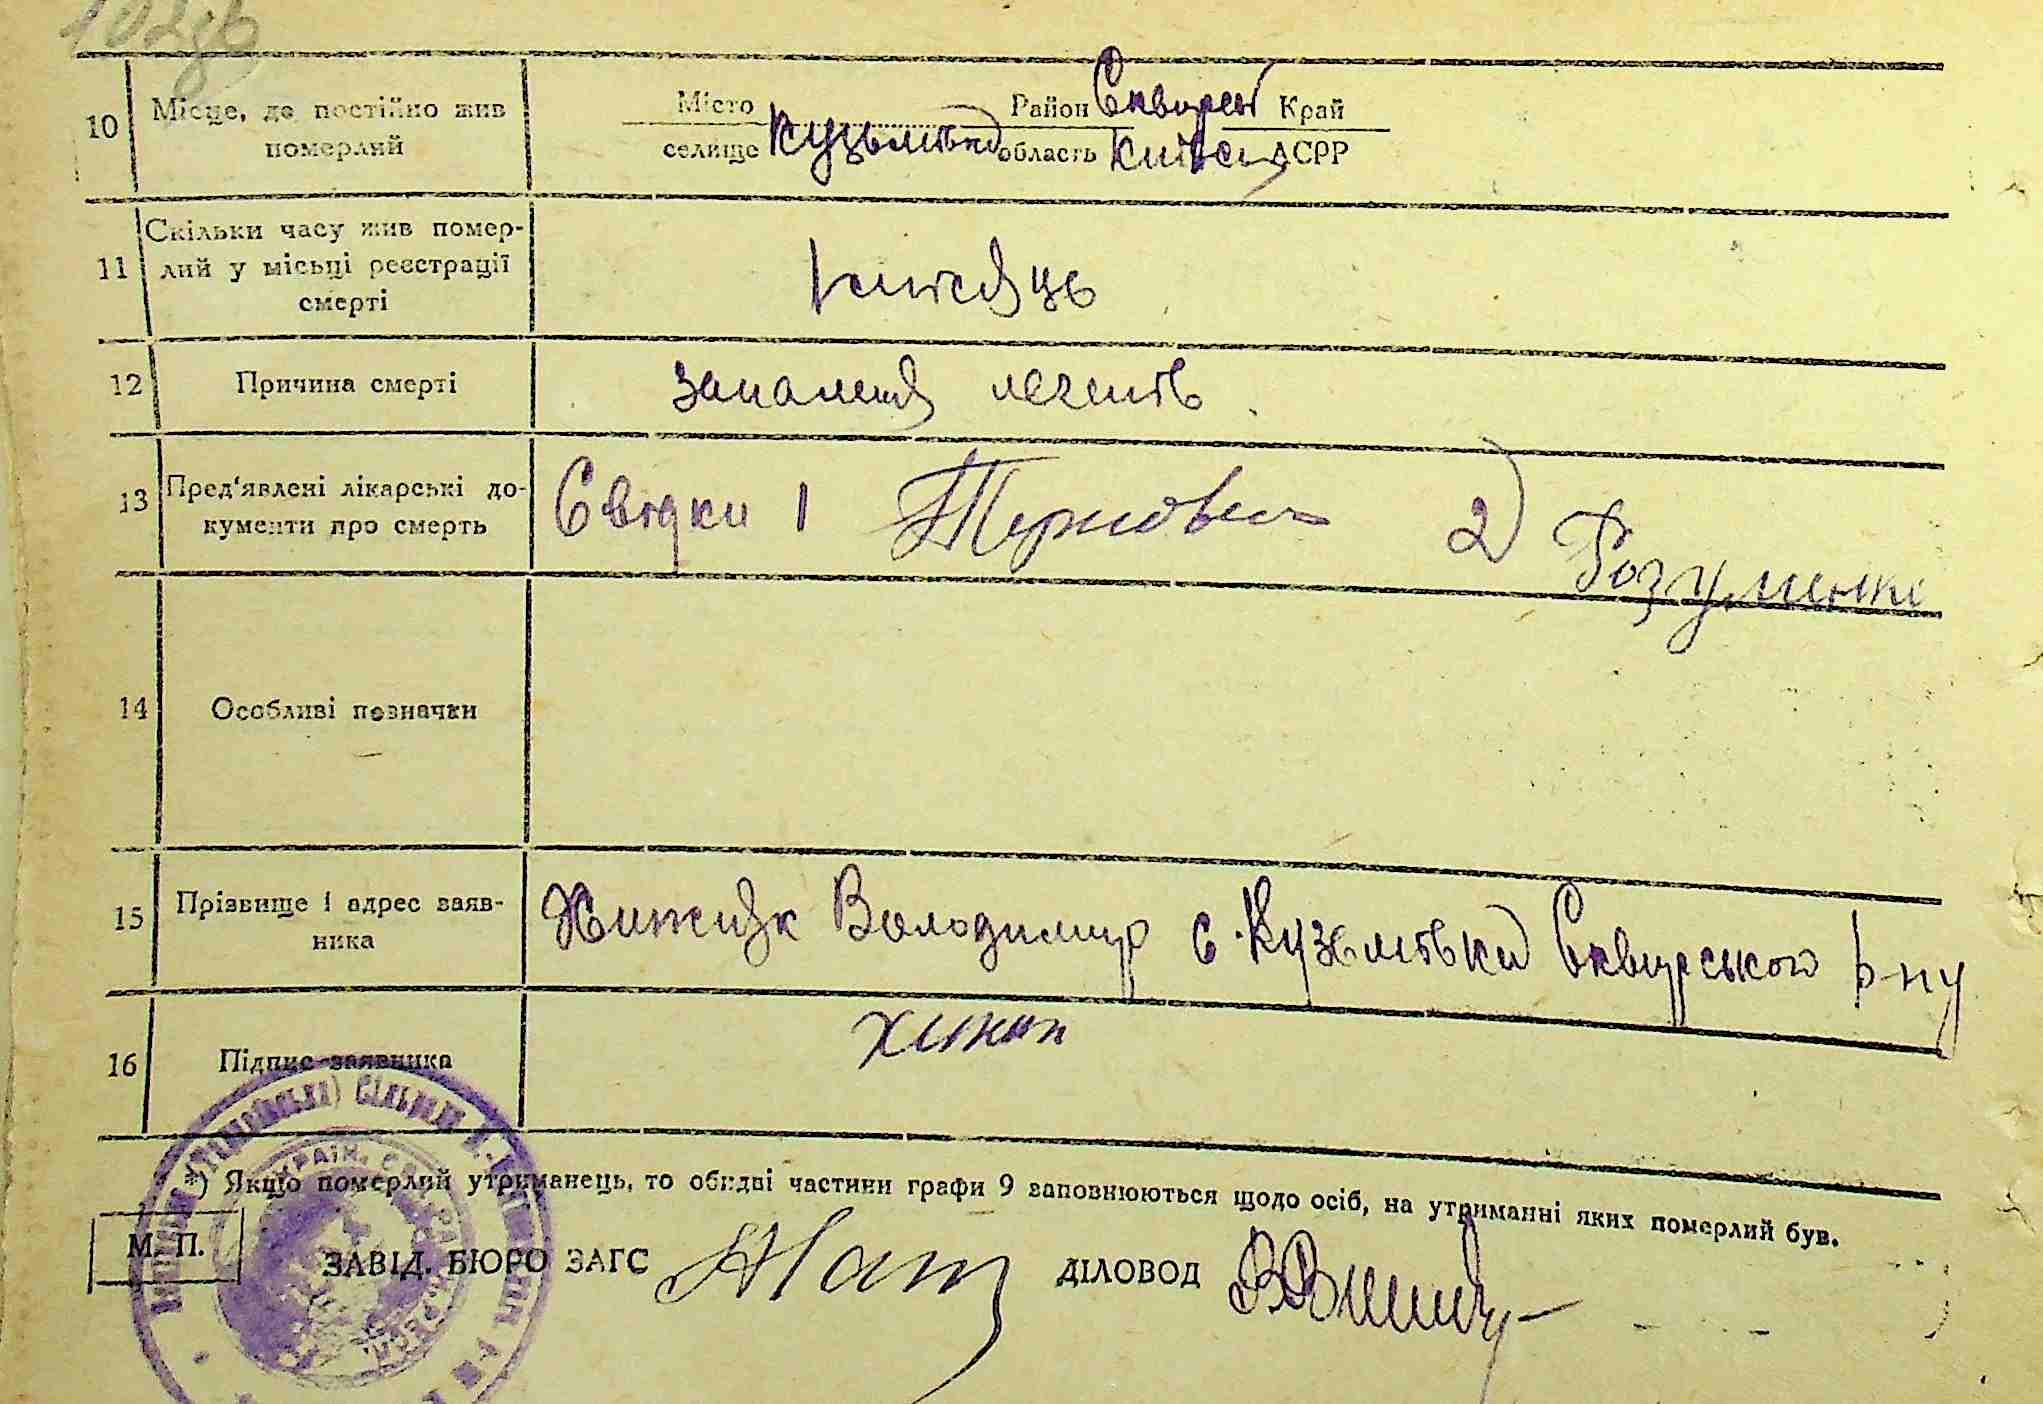 10 Місце, де постійно жив
померлий
Місто Район Сквирсь Край
селище Кузьмівка область Київсь АСРР
11 Скільки часу жив помер-
лий у місьці реєстрації
смерті
1 місяць
12 Причина смерті запаленя легенів
13 Пред'явлені лікарські до-
кументи про смерть
Свідки 1 2) Розуменко
14 Особливі позначки
15 Прізвище і адрес заяв-
ника
Хижняк Володимир с. Кузьмівка Сквирського р-ну
16 Підпис заявника
*) Якщо померлий утриманець, то обидві частини графи 9 заповнюються щодо осіб, на утриманні яких померлий був.
М. П. ЗАВІД. БЮРО ЗАГС ДІЛОВОД